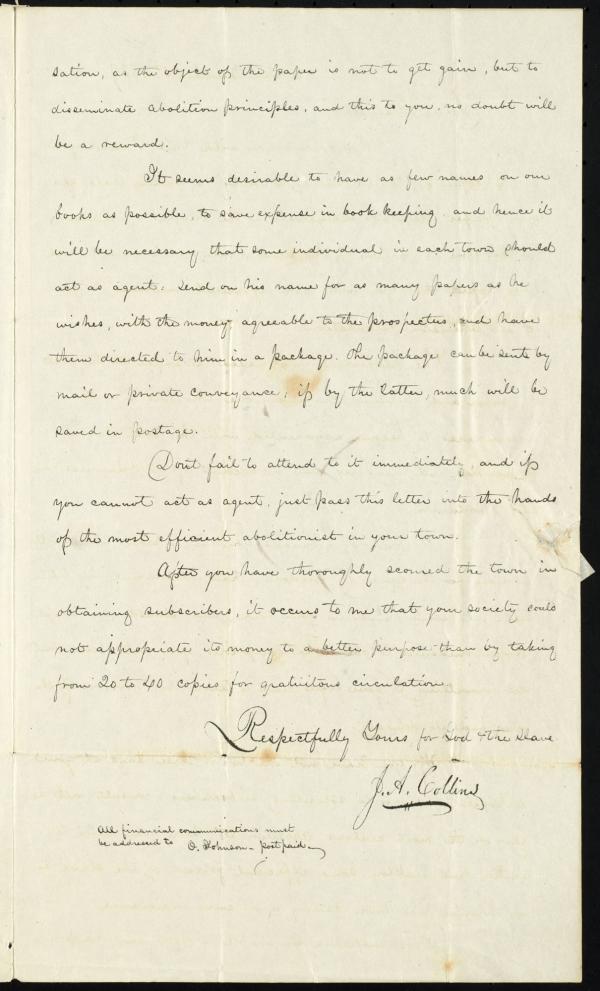 sation, as the object of the paper is not to get gain, but to
disseminate abolition principles, and this to you, no doubt will
be a reward.
It seems desirable to have as few names on our
books as possible, to save expense in book keeping and hence it
will be necessary that some individual in each town should
act as agent: send on his name for as many papers as he
wishes, with the money agreeable to the prospectus, and have
them directed to him in a package. The package can be sent by
mail or private conveyance; if by the latter, much will be
saved in postage.
Dont fail to attend to it immediately, and if
you cannot act as agent, just pass this letter into the hands
of the most efficient abolitionist in your town.
After you have thoroughly scoured the town in
obtaining subscribers, it occurs to me that your society could
not appropriate its money to a better purpose than by taking
from 20 to 40 copies for gratuitous circulation.
Respectfully Yours for God & the Slave
J. A. Collins
All financial communications must
be addressed to O. Johnson - post paid -